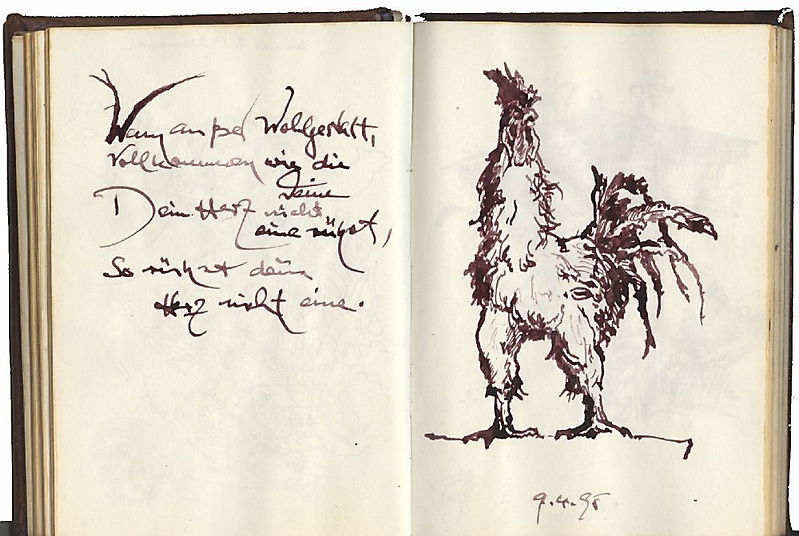 Wohlgestalt,
Vollkommen wie die
Deine
Dein Herz nicht
eine rührt,
So rührt dein
Herz nicht eine.
9.4.95